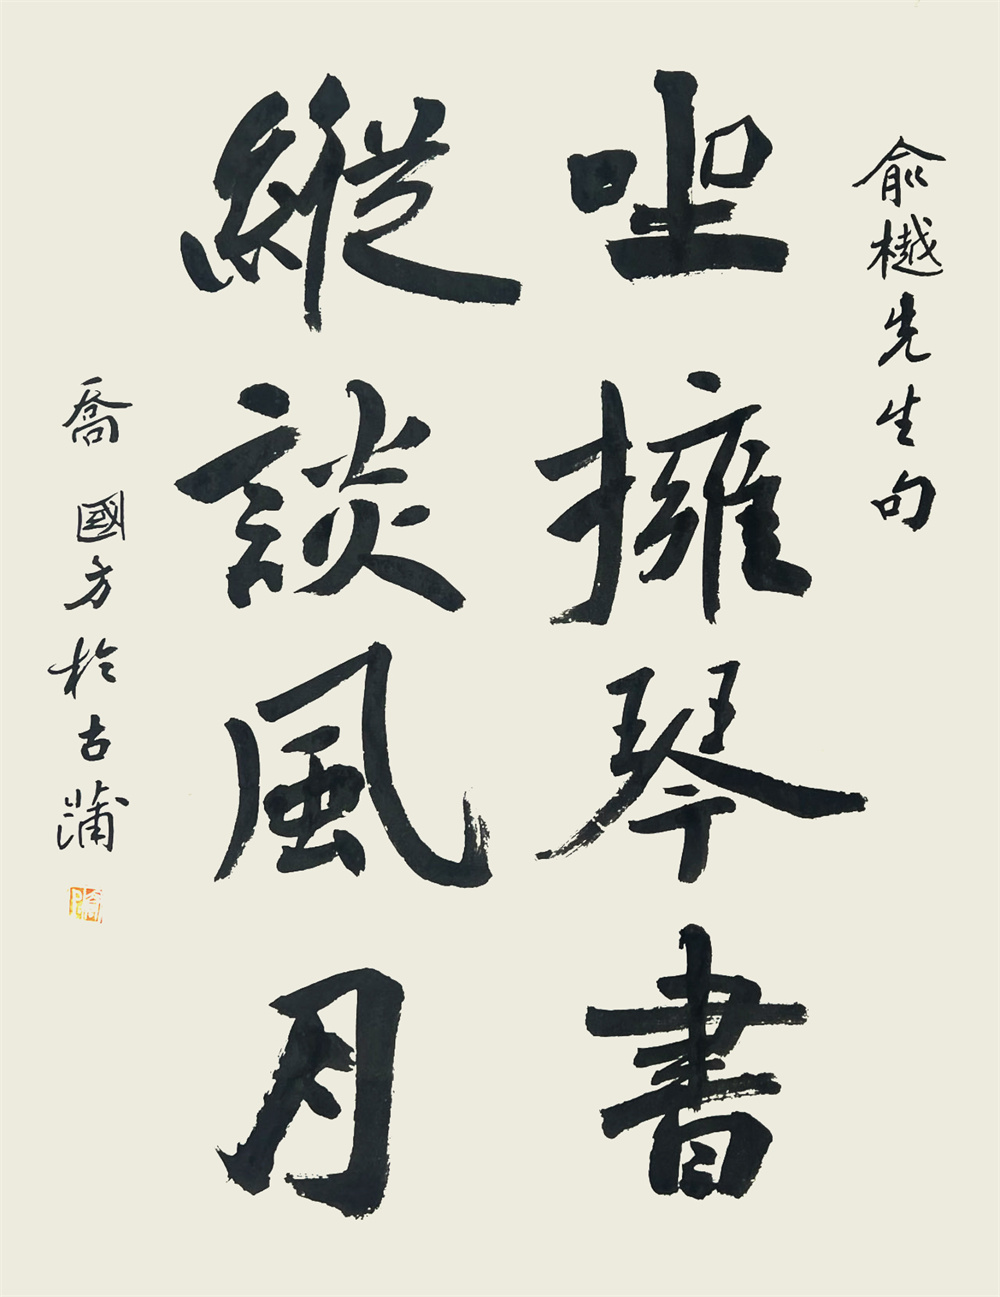 俞樾先生句
坐擁琴書
縱談風月
喬國方於古蒲